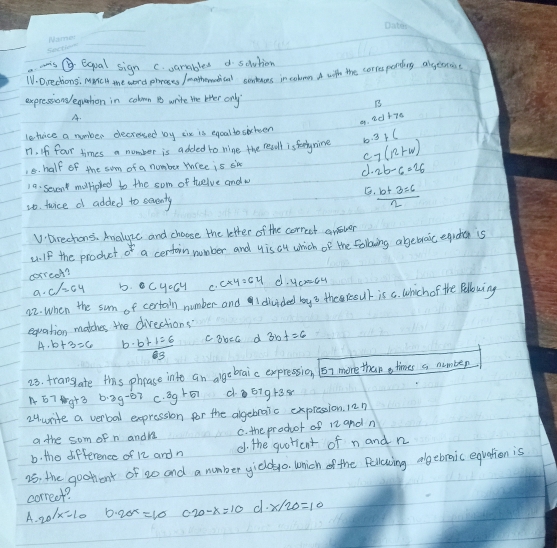 Name:
Date:
b Equal sign c. variables d. solution
IV. Directions: MATCH the word phrases/mathematical sentences in column A with the corresponding algebraic
expressions/equation in column B write the letter only
A.
B
16. twice a number decreased by six is equal to sixteen
a. 2d+70
17. If four times a number is added to nine the result is fortynine
18. half of the sum of a number three is six
c. 7(12+w)
19. Seven multiplied to the sum of twelve and w
d. 2b-6=26
20. twice d added to seventy
e. b+3=6
2
V. Directions. Analyze and choose the letter of the correct answer
21. If the product of a certain number and 4 is 64 which of the following algebraic equation is
correct?
a. c/=64 b. c4=64 c. c×4=64 d. 4c=64
22. When the sum of certain number and 1 divided by 3 the result is 6. which of the following
equation matches the directions
A. b+3=6 b. b+1=6 c 3b=6 d 3b+=6
3
23. translate this phrase into an algebraic expression, 57 more than times a number
A. 57 g+3 b. 3g-57 c. 3g+57 d. 57g+3
24. write a verbal expression for the algebraic expression. 12n
a the sum of n and 12 c. the product of 12 and n
b. the difference of 12 and n d. the quotient of n and n
25. the quotient of 20 and a number yields 10. which of the following algebraic equation is
correct?
A. 20/x=10 b. 20x=10 c 20-x=10 d. x/20=10